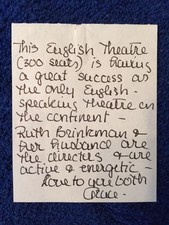 This English Theatre
(300 seats) is having
a great success as
the only English-
speaking theatre on
the continent —
Ruth Brinkman &
her husband are
the directors & are
active & energetic —
Love to you both
Grace.